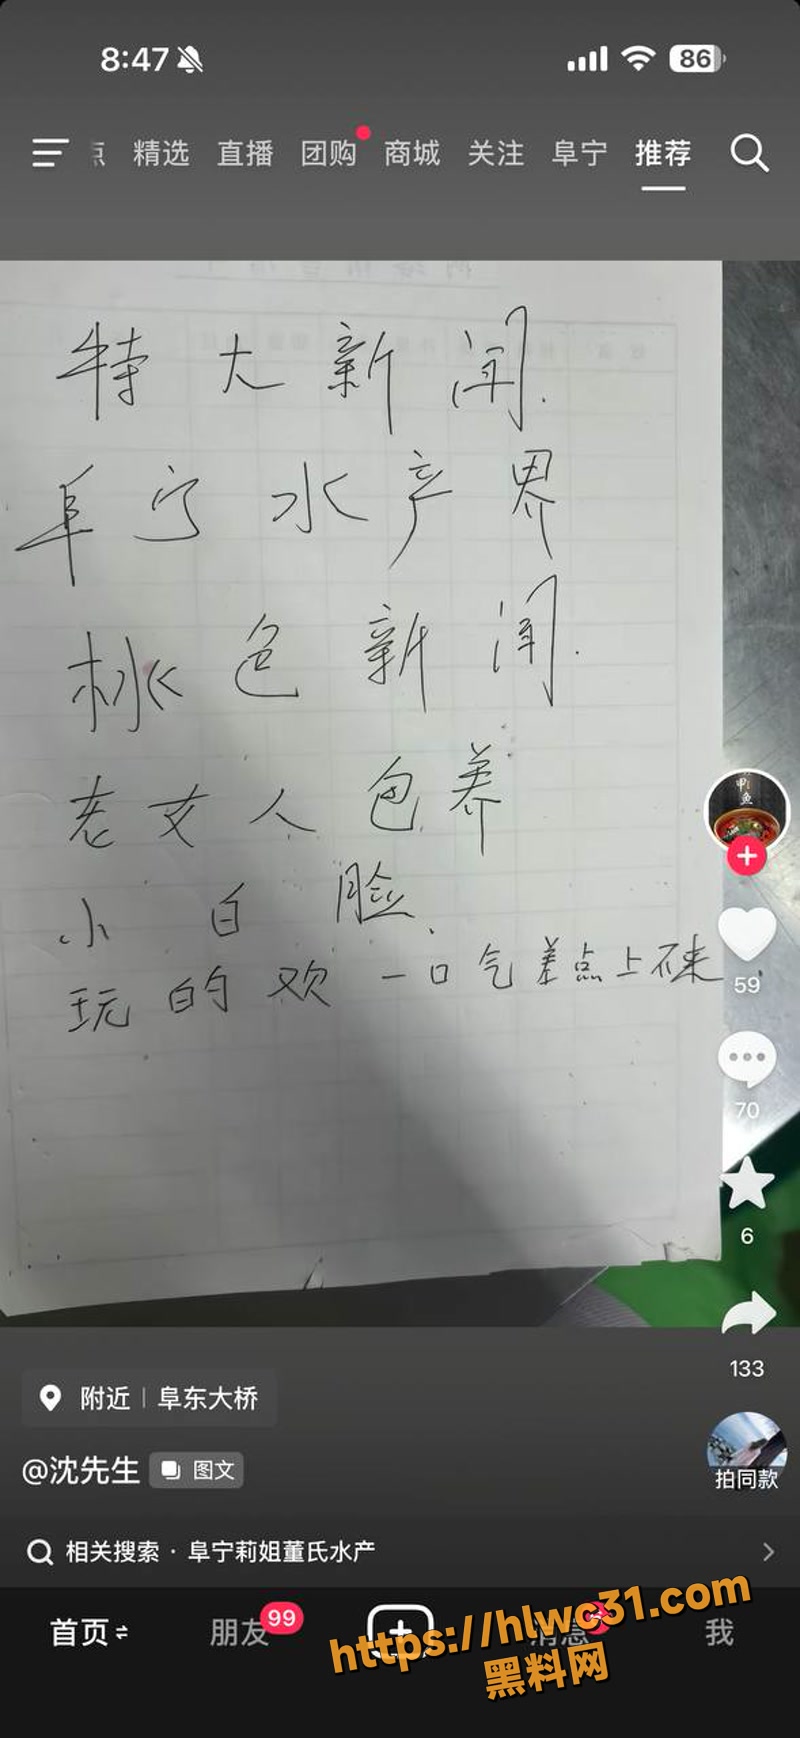 8:47
86
点 精选 直播 团购 商城 关注 阜宁 推荐
特大新闻.
阜宁水产界
桃色新闻.
老女人包养
小白脸.
玩的欢 一口气差点上不来.
甲鱼
59
70
6
133
附近 | 阜东大桥
拍同款
@沈先生 图文
相关搜索 · 阜宁莉姐董氏水产
首页 朋友 99 消息 我
https://hlwc31.com
黑料网